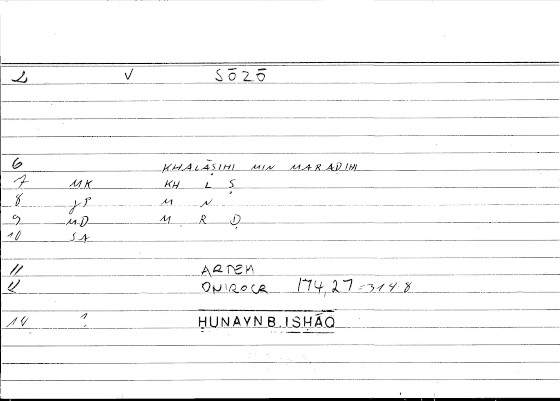 2 V SŌZŌ
6 KHALĀṢIHI MIN MARAḌIHI
7 MK KH L Ṣ
8 JP M N
9 MD M R Ḍ
10 SA
11 ARTEM
12 ONIROCR 174,27=314.8
14 ? ḤUNAYN B. ISḤĀQ